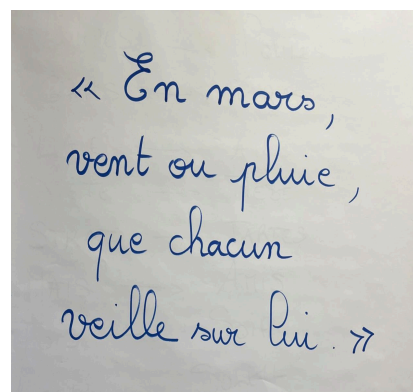 « En mars,
vent ou pluie,
que chacun
veille sur lui. »